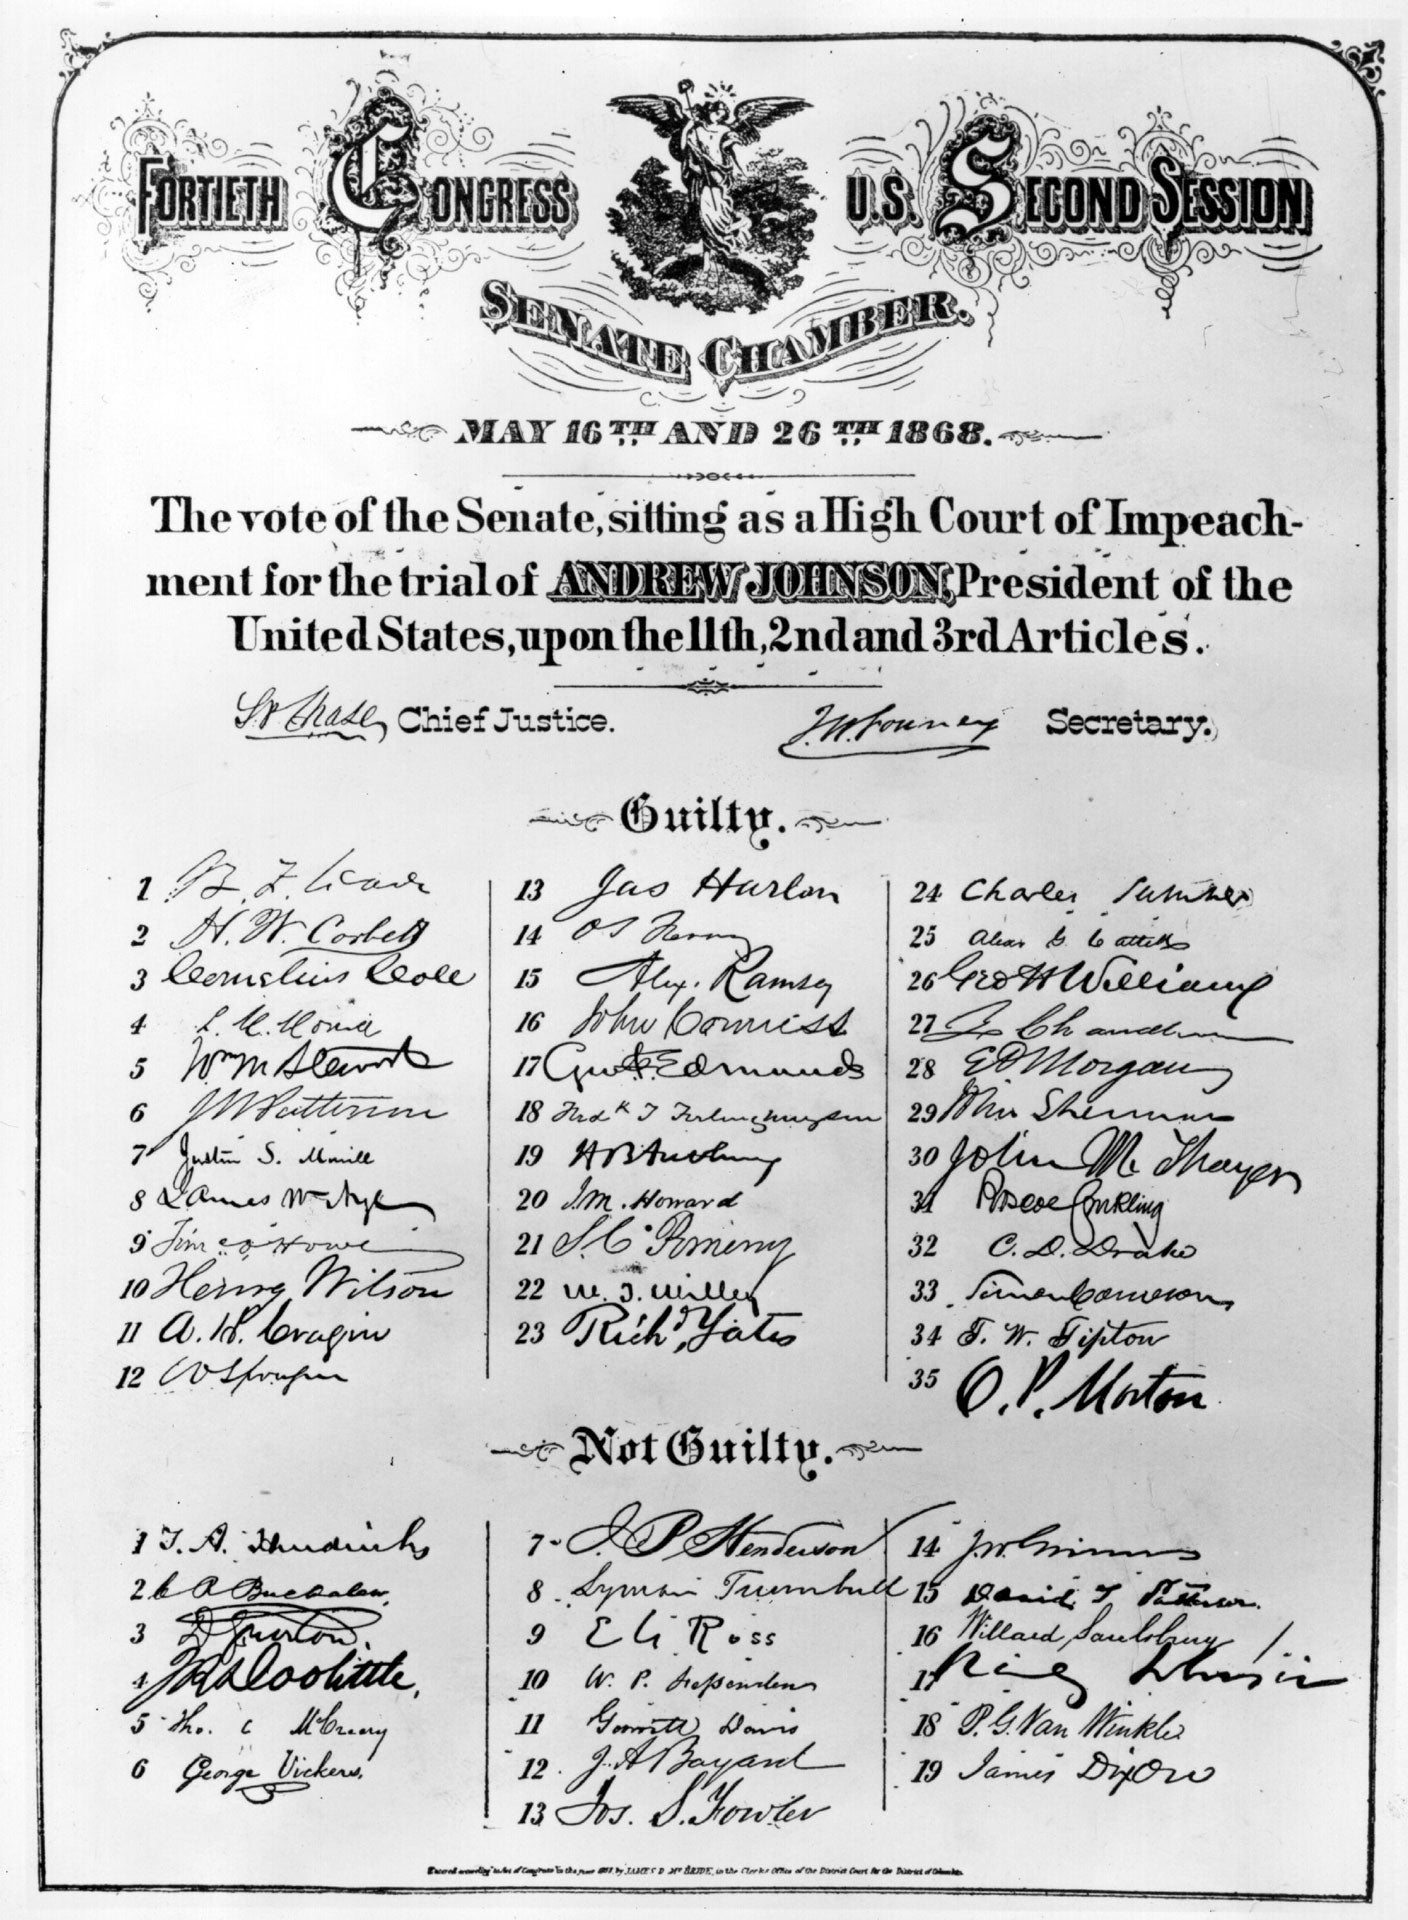 FORTIETH CONGRESS U.S. SECOND SESSION
SENATE CHAMBER.
MAY 16TH AND 26TH 1868.
The vote of the Senate, sitting as a High Court of Impeach-
ment for the trial of ANDREW JOHNSON, President of the
United States, upon the 11th, 2nd and 3rd Articles.
S P Chase, Chief Justice.
J. W. Forney Secretary.
Guilty.
1 B. F. Wade
2 H. W. Corbett
3 Cornelius Cole
4 L. M. Morrill
5 Wm M Stewart
6 J W Patterson
7 Justin S. Morrill
8 James W. Nye
9 Timo. O. Howe
10 Henry Wilson
11 A. H. Cragin
12 W Sprague
13 Jas Harlan
14 O S Ferry
15 Alex. Ramsey
16 John Conness
17 Geo F. Edmunds
18 Fredk T Frelinghuysen
19 H B Anthony
20 J. M. Howard
21 S. C. Pomeroy
22 W. T. Willey
23 Richd Yates
24 Charles Sumner
25 Alex G. Cattell
26 Geo H Williams
27 Z Chandler
28 E D Morgan
29 John Sherman
30 John M. Thayer
31 Roscoe Conkling
32 C. D. Drake
33 Simon Cameron
34 T. W. Tipton
35 O. P. Morton
Not Guilty.
1 T. A. Hendricks
2 C R Buckalew
3 D S Norton.
4 J R Doolittle.
5 Tho. C McCreery
6 George Vickers.
7 J. B Henderson
8 Lyman Trumbull
9 E G Ross
10 W. P. Fessenden
11 Garrett Davis
12 J. A Bayard
13 Jos. S. Fowler
14 J. W. Grimes
15 David T Patterson.
16 Willard Saulsbury
17
18 P. G. Van Winkle
19 James Dixon
Entered according to Act of Congress in the year by JAMES D. McBRIDE, in the Clerks Office of the District Court for the District of Columbia.